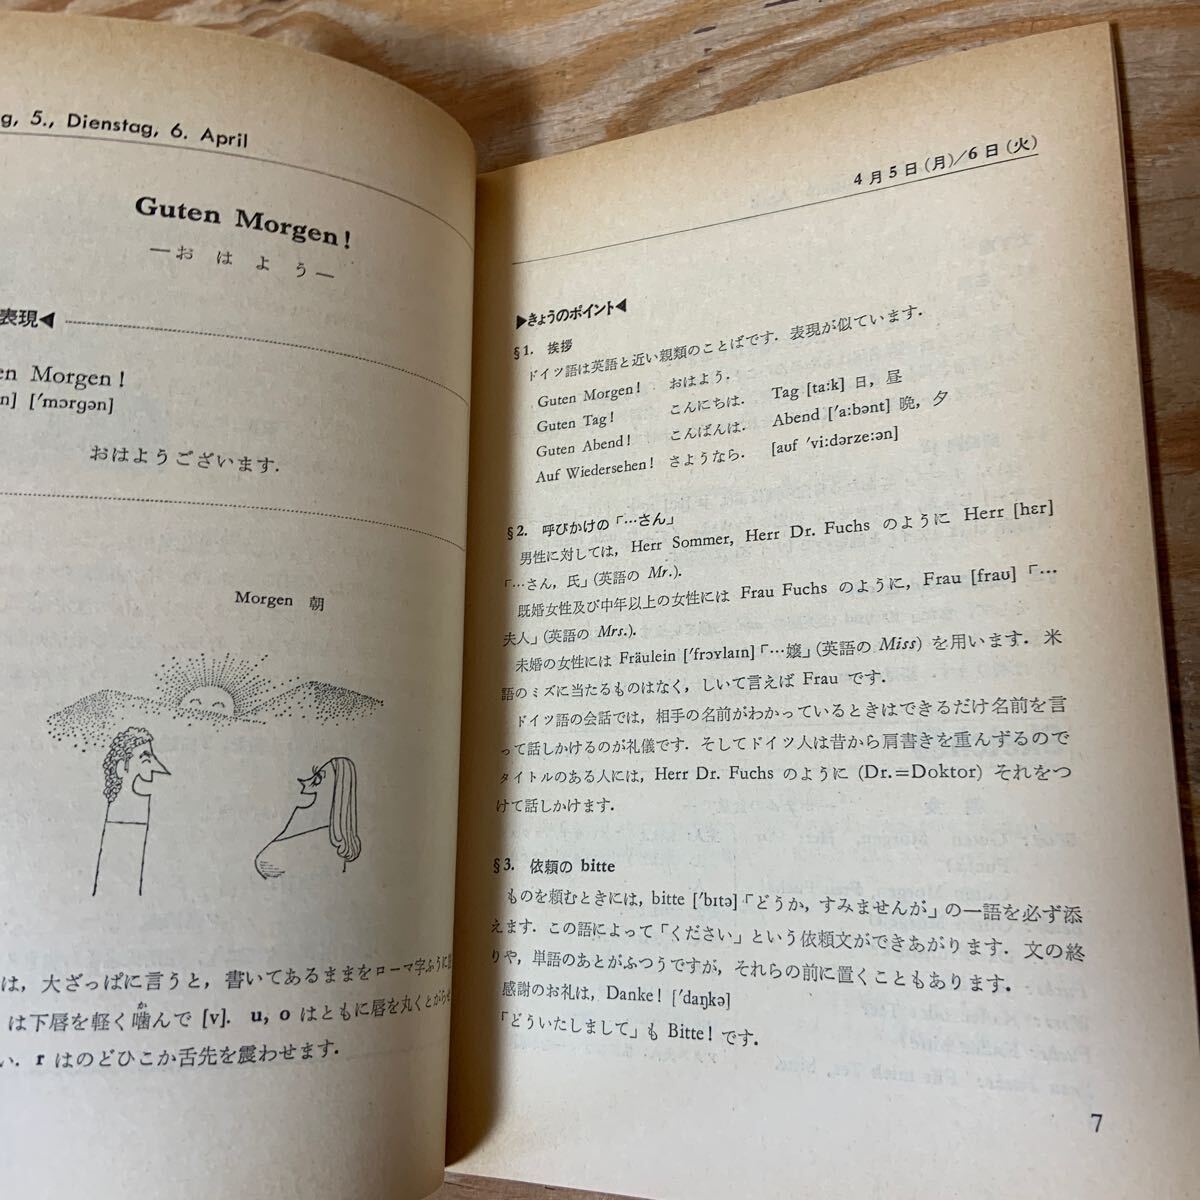 g, 5., Dienstag, 6. April
Guten Morgen!
—おはよう—
表現◀
en Morgen!
n] [ˈmɔrgən]
おはようございます.
Morgen 朝
は，大ざっぱに言うと，書いてあるままをローマ字ふうに
は下唇を軽く噛んで [v]. u, o はともに唇を丸くとがらせ
い. r はのどひこか舌先を震わせます.
4月5日(月)／6日(火)
▶きょうのポイント◀
§1. 挨拶
ドイツ語は英語と近い親類のことばです. 表現が似ています.
Guten Morgen! おはよう.
Guten Tag! こんにちは. Tag [ta:k] 日，昼
Guten Abend! こんばんは. Abend [ˈa:bənt] 晩，夕
Auf Wiedersehen! さようなら. [aʊf ˈvi:dərze:ən]
§2. 呼びかけの「…さん」
男性に対しては，Herr Sommer, Herr Dr. Fuchs のように Herr [hɛr]
「…さん，氏」(英語の Mr.).
既婚女性及び中年以上の女性には Frau Fuchs のように，Frau [fraʊ]「…
夫人」(英語の Mrs.).
未婚の女性には Fräulein [ˈfrɔʏlaɪn]「…嬢」(英語の Miss) を用います. 米
語のミズに当たるものはなく，しいて言えば Frau です.
ドイツ語の会話では，相手の名前がわかっているときはできるだけ名前を言
って話しかけるのが礼儀です. そしてドイツ人は昔から肩書きを重んずるので
タイトルのある人には，Herr Dr. Fuchs のように (Dr.=Doktor) それをつ
けて話しかけます.
§3. 依頼の bitte
ものを頼むときには，bitte [ˈbɪtə]「どうか，すみませんが」の一語を必ず添
えます. この語によって「ください」という依頼文ができあがります. 文の終
りや，単語のあとがふつうですが，それらの前に置くこともあります.
感謝のお礼は，Danke! [ˈdaŋkə]
「どういたしまして」も Bitte! です.
7